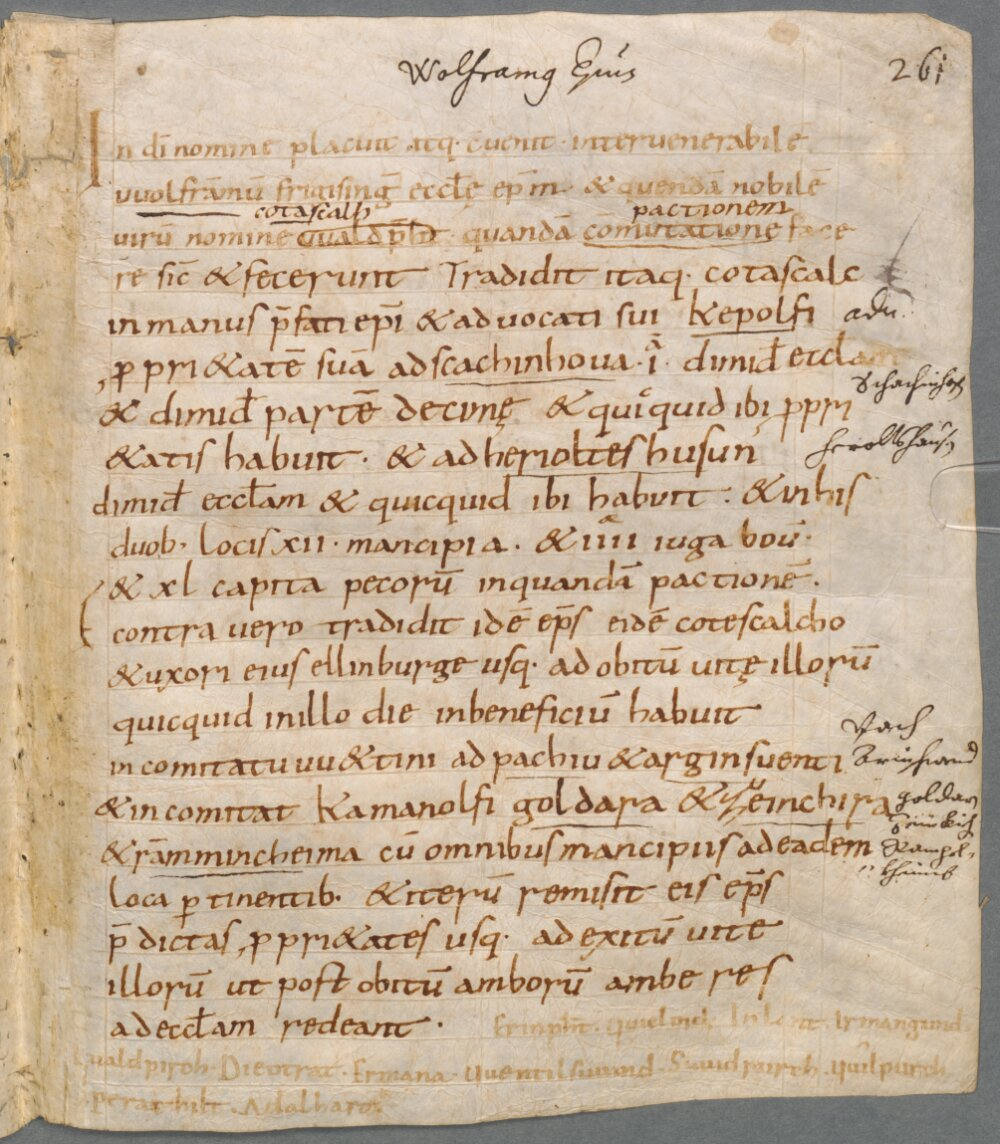 Wolframg Epūs
261
In dī nomine placuit atq· cūenit· inter venerabilē
vvolfrāmū frigisingē̄ eccłę ep̄m· & quendā nobilē
cotascalh pactionem
uirū nomine Cualdp̄ht· quandā cōmutationę face
re sic̄ & fecerunt Tradidit itaq· cotascalc
in manus p̄fati ep̄i & advocati sui kepolfi adu.
ꝓpri&atē suā ad scachinhova · i · dimiđ etclam
Schachinhof
& dimiđ partē decimę & quicquid ibi ꝓpri
&atis habuit· & ad herioltes husun
heroltshausn
dimiđ eccłam & quicquid ibi habuit : & in his
duob· locis xii· mancipia· & iiii iuga boū·
& xl capita pecorū in quandā pactionē·
contra vero tradidit idē ep̄s eidē cotescalcho
& uxori eius ellinburge usq· ad obitū uitę illorū
quicquid in illo die in beneficiū habuit
Pach
in comitatu uu&tini ad pachiu & arginsuenti
& in comitat kamanolfi goldara & iseinchira
goldarn
& rāmmincheima cū omnibus mancipiis ad eadem
loca ꝑtinentib· & iterū remisit eis ep̄s
p̄dictas ꝓpri&ates usq· ad exitū uite
illorū ut post obitū amborū ambe res
ad eccłam redeant· Erinp̄ht· Irmangund
Cualdpiroh· Dieotrat· Ermana· Uuentilsuuind· Suuidpurch· Uuilpurch
perahthilt· Adalhart